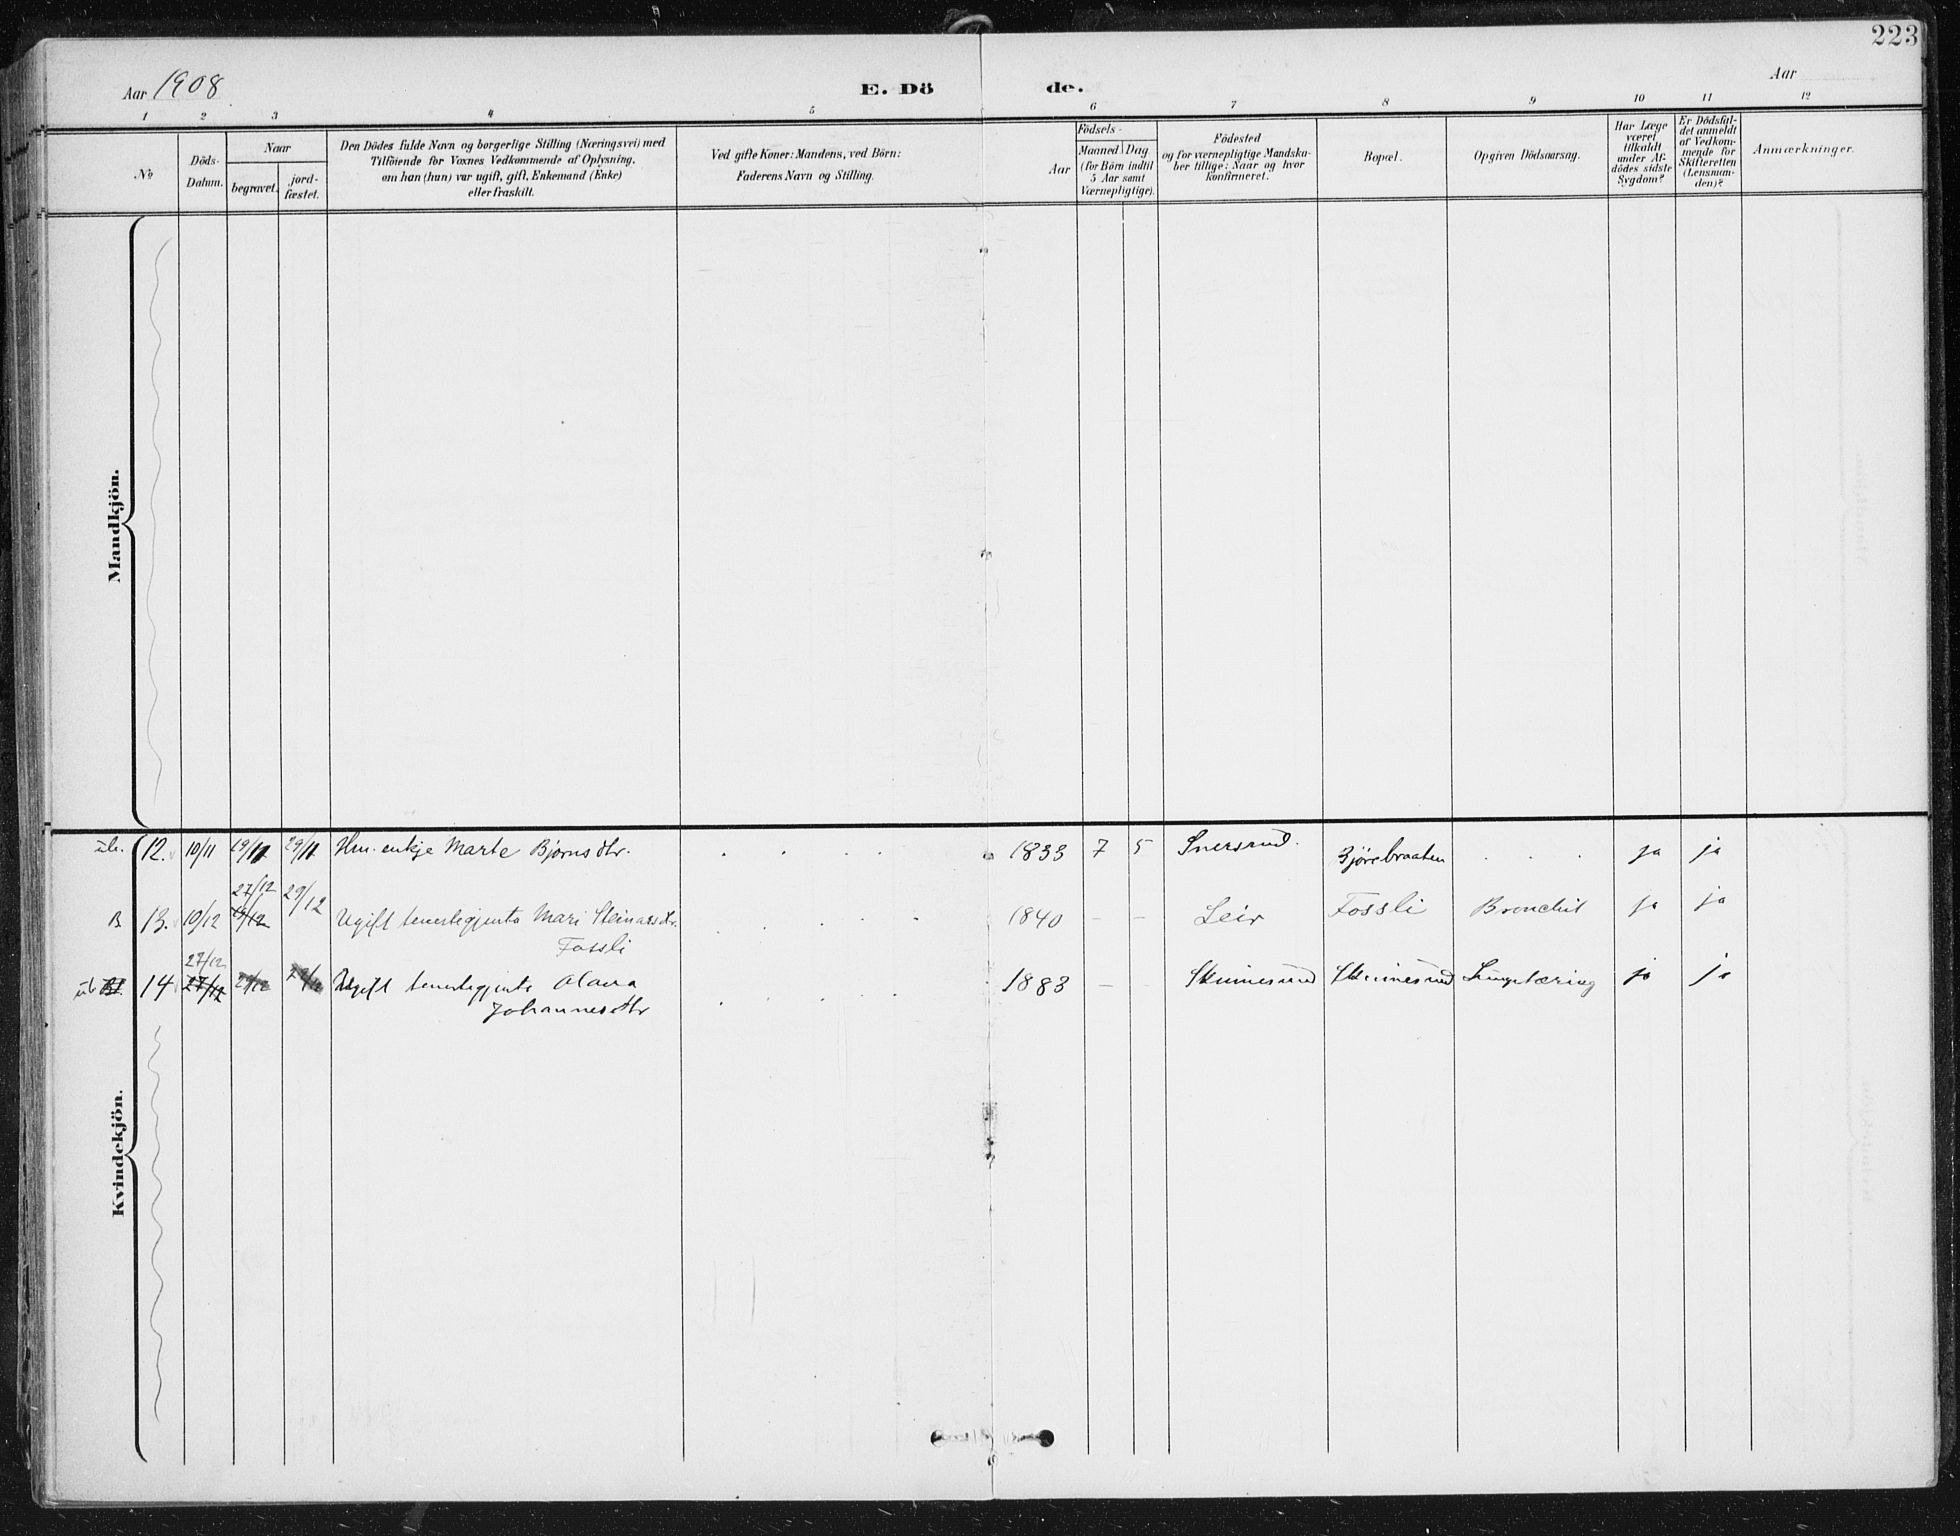 223
Aar 1908
E. Dö
de.
Aar
1 2 3 4 5 6 7 8 9 10 11 12
No
Döds-
Datum.
Naar
begravet.
jord-
fæstet.
Den Dödes fulde Navn og borgerlige Stilling (Næringsvei) med
Tilföiende for Voxnes Vedkommende af Oplysning,
om han (hun) var ugift, gift, Enkemand (Enke)
eller fraskilt.
Ved gifte Koner: Mandens, ved Börn:
Faderens Navn og Stilling.
Födsels-
Aar
Maaned
Dag
(for Börn indtil
5 Aar samt
Værnepligtige).
Födested
og for værnepligtige Mandska-
ber tillige: Naar og hvor
konfirmeret.
Bopæl.
Opgiven Dödsaarsag.
Har Læge
været
tilkaldt
under Af-
dödes sidste
Sygdom?
Er Dödsfal-
det anmeldt
af Vedkom-
mende for
Skifteretten
(Lensman-
den)?
Anmærkninger.
Mandkjön.
12. 10/11 19/11 29/11 Hm. enkje Marte Bjørnsdtr. 1833 7 5 Snersrud. Bjørebraaten ja ja
27/12
B 13. 10/12 19/12 29/12 Ugift tenestegjenta Mari Steinarsdtr. 1840 – – Leir Fossli Bronchit ja ja
Fossli
27/12
14 27/12 Ugift tenestegjenta Olava 1883 – – Skinnesrud Skinnesrud Lungetæring ja ja
Johannesdtr
Kvindekjön.